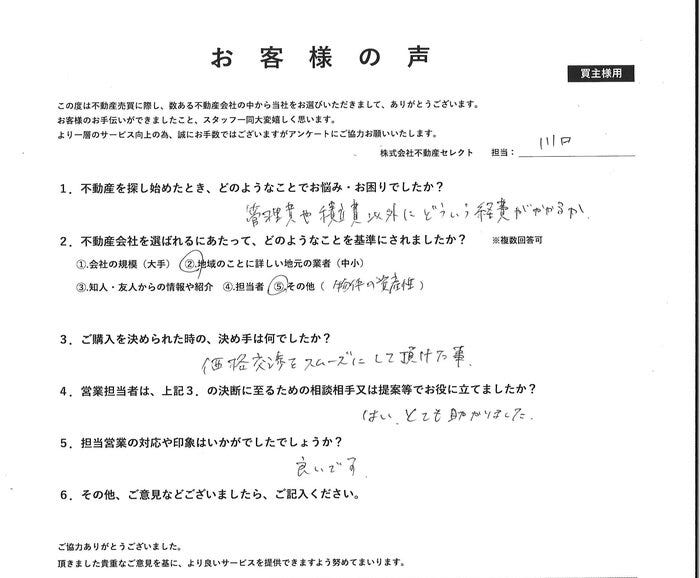 お客様の声
買主様用
この度は不動産売買に際し、数ある不動産会社の中から当社をお選びいただきまして、ありがとうございます。
お客様のお手伝いができましたこと、スタッフ一同大変嬉しく思います。
より一層のサービス向上の為、誠にお手数ではございますがアンケートにご協力お願いいたします。
株式会社不動産セレクト 担当：川口
1．不動産を探し始めたとき、どのようなことでお悩み・お困りでしたか？
管理費や積立費以外にどういう経費がかかるか．
2．不動産会社を選ばれるにあたって、どのようなことを基準にされましたか？ ※複数回答可
①.会社の規模（大手） ②.地域のことに詳しい地元の業者（中小）
③.知人・友人からの情報や紹介 ④.担当者 ⑤.その他（物件の資産性）
3．ご購入を決められた時の、決め手は何でしたか？
価格交渉をスムーズにして頂けた事．
4．営業担当者は、上記3．の決断に至るための相談相手又は提案等でお役に立てましたか？
はい、とても助かりました．
5．担当営業の対応や印象はいかがでしたでしょうか？
良いです．
6．その他、ご意見などございましたら、ご記入ください。
ご協力ありがとうございました。
頂きました貴重なご意見を基に、より良いサービスを提供できますよう努めてまいります。